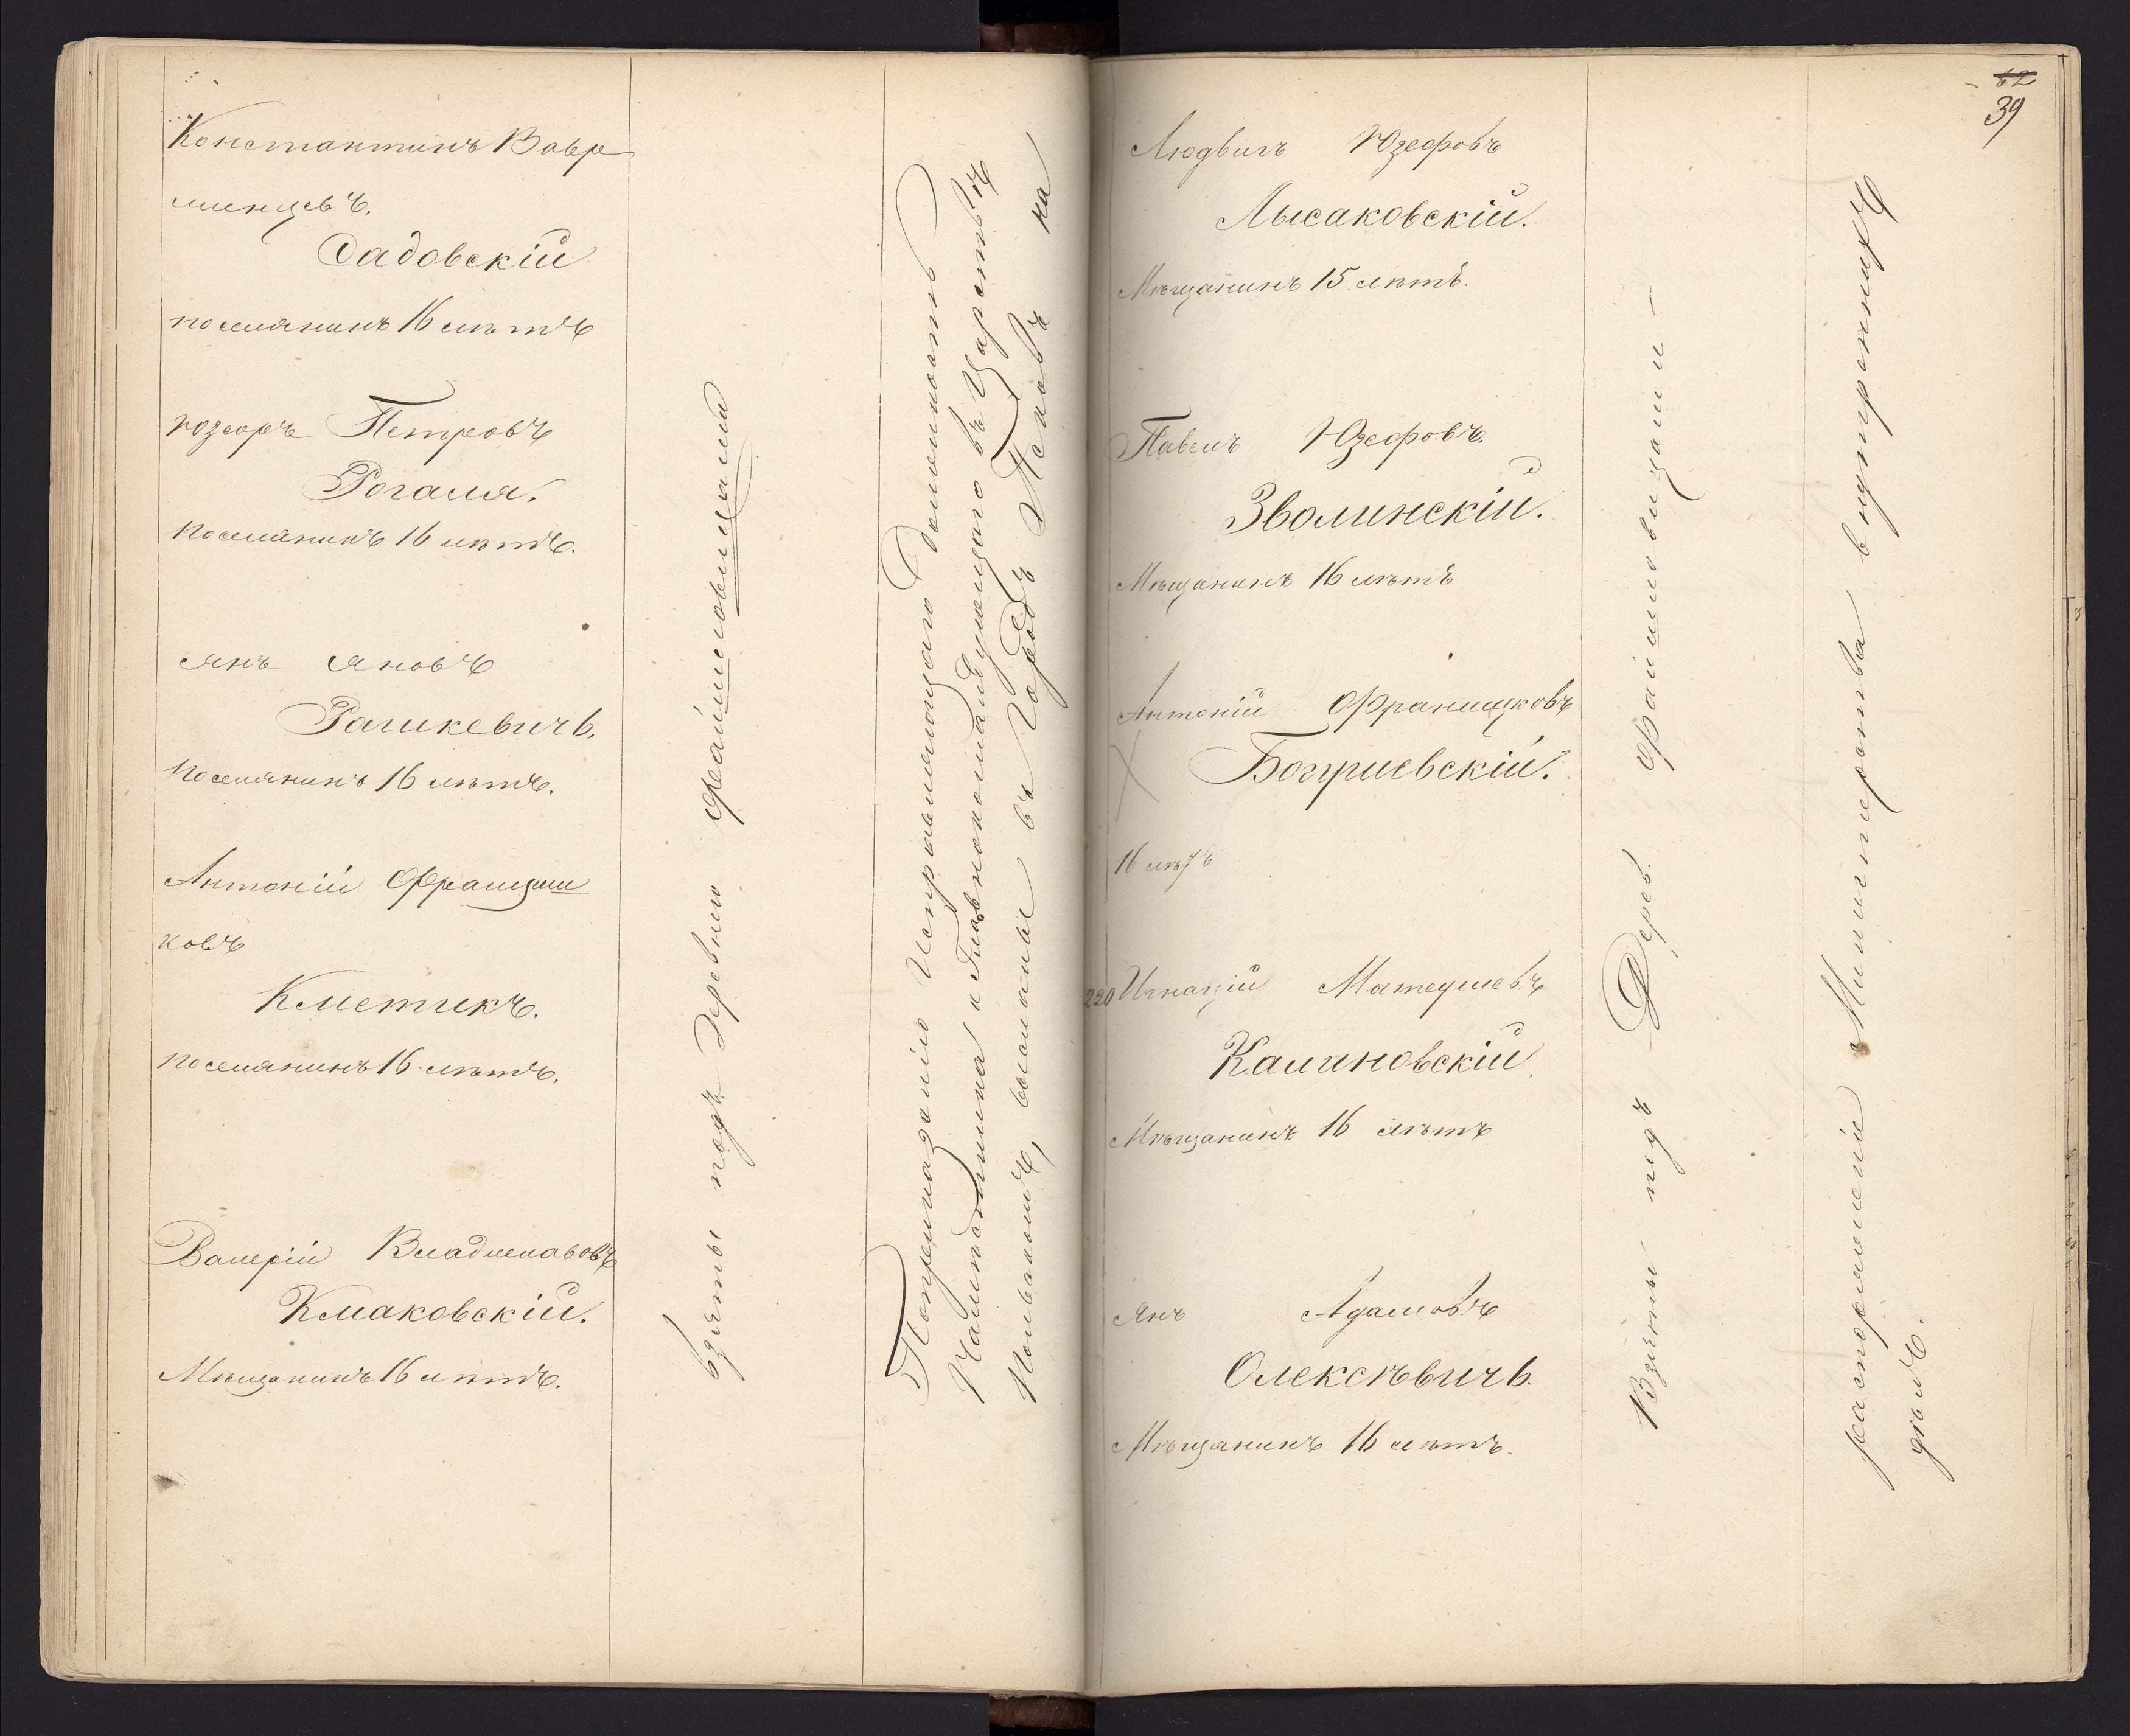 Константинъ Вавр
минцевъ.
Садовскій
поселянинъ 16 лѣтъ
Юзефъ Петровъ
Рогаля.
Поселянинъ 16 лѣтъ.
Янъ Яновъ
Рашкевичъ.
Поселянинъ 16 лѣтъ.
Антоній Францишковъ
Кметикъ.
поселянинъ 16 лѣтъ.
Валерій Владиславовъ
Кмаковскій.
Мѣщанинъ 16 лѣтъ.
взяты подъ деревнею
По приказанію Исправляющаго Должность
Намѣстника и Главнокомандующаго въ Царствѣ
Польскомъ, высланы въ Городъ Псковъ на
62
39
Людвигъ Юзефовъ
Лысаковскій.
Мѣщанинъ 15 лѣтъ.
Павелъ Юзефовъ.
Зволинскій.
Мѣщанинъ 16 лѣтъ
Антоній Францишковъ
16 лѣтъ
220 Игнацій Матеушевъ
Калиновскій
Мѣщанинъ 16 лѣтъ
Янъ Адамовъ
Олексѣвичъ.
Мѣщанинъ 16 лѣтъ.
Взяты подъ Дерев.
распоряженіи Министерства внутреннихъ
дѣлъ.